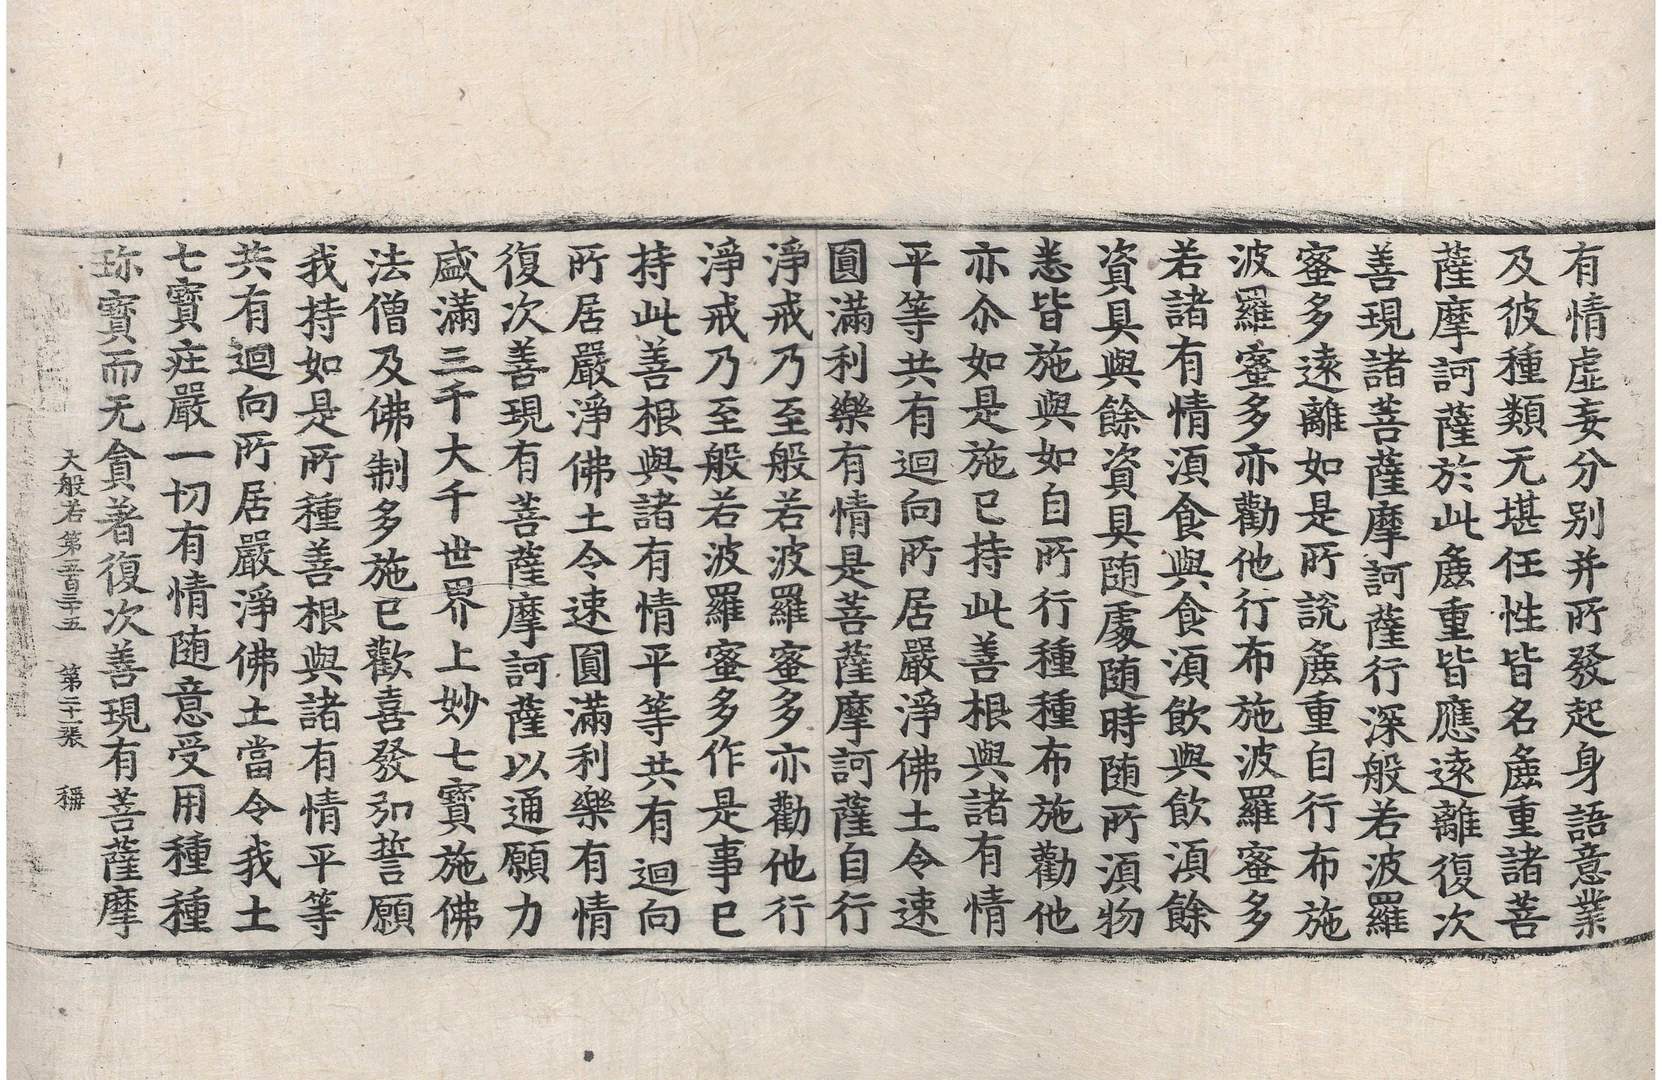 有情虛妄分别并所發起身語意業
及彼種類无堪任性皆名麁重諸菩
薩摩訶薩於此麁重皆應遠離復次
善現諸菩薩摩訶薩行深般若波羅
蜜多遠離如是所說麁重自行布施
波羅蜜多亦勸他行布施波羅蜜多
若諸有情湏食與食湏飲與飲湏餘
資具與餘資具随處随時随所湏物
悉皆施與如自所行種種布施勸他
亦尒如是施已持此善根與諸有情
平等共有迴向所居嚴淨佛土令速
圓滿利樂有情是菩薩摩訶薩自行
淨戒乃至般若波羅蜜多亦勸他行
淨戒乃至般若波羅蜜多作是事已
持此善根與諸有情平等共有迴向
所居嚴淨佛土令速圓滿利樂有情
復次善現有菩薩摩訶薩以通願力
盛滿三千大千世界上妙七寶施佛
法僧及佛制多施已歡喜發弘誓願
我持如是所種善根與諸有情平等
共有迴向所居嚴淨佛土當令我土
七寶庄嚴一切有情随意受用種種
珎寶而无貪著復次善現有菩薩摩
大般若第五百三十五 第二十張 稱